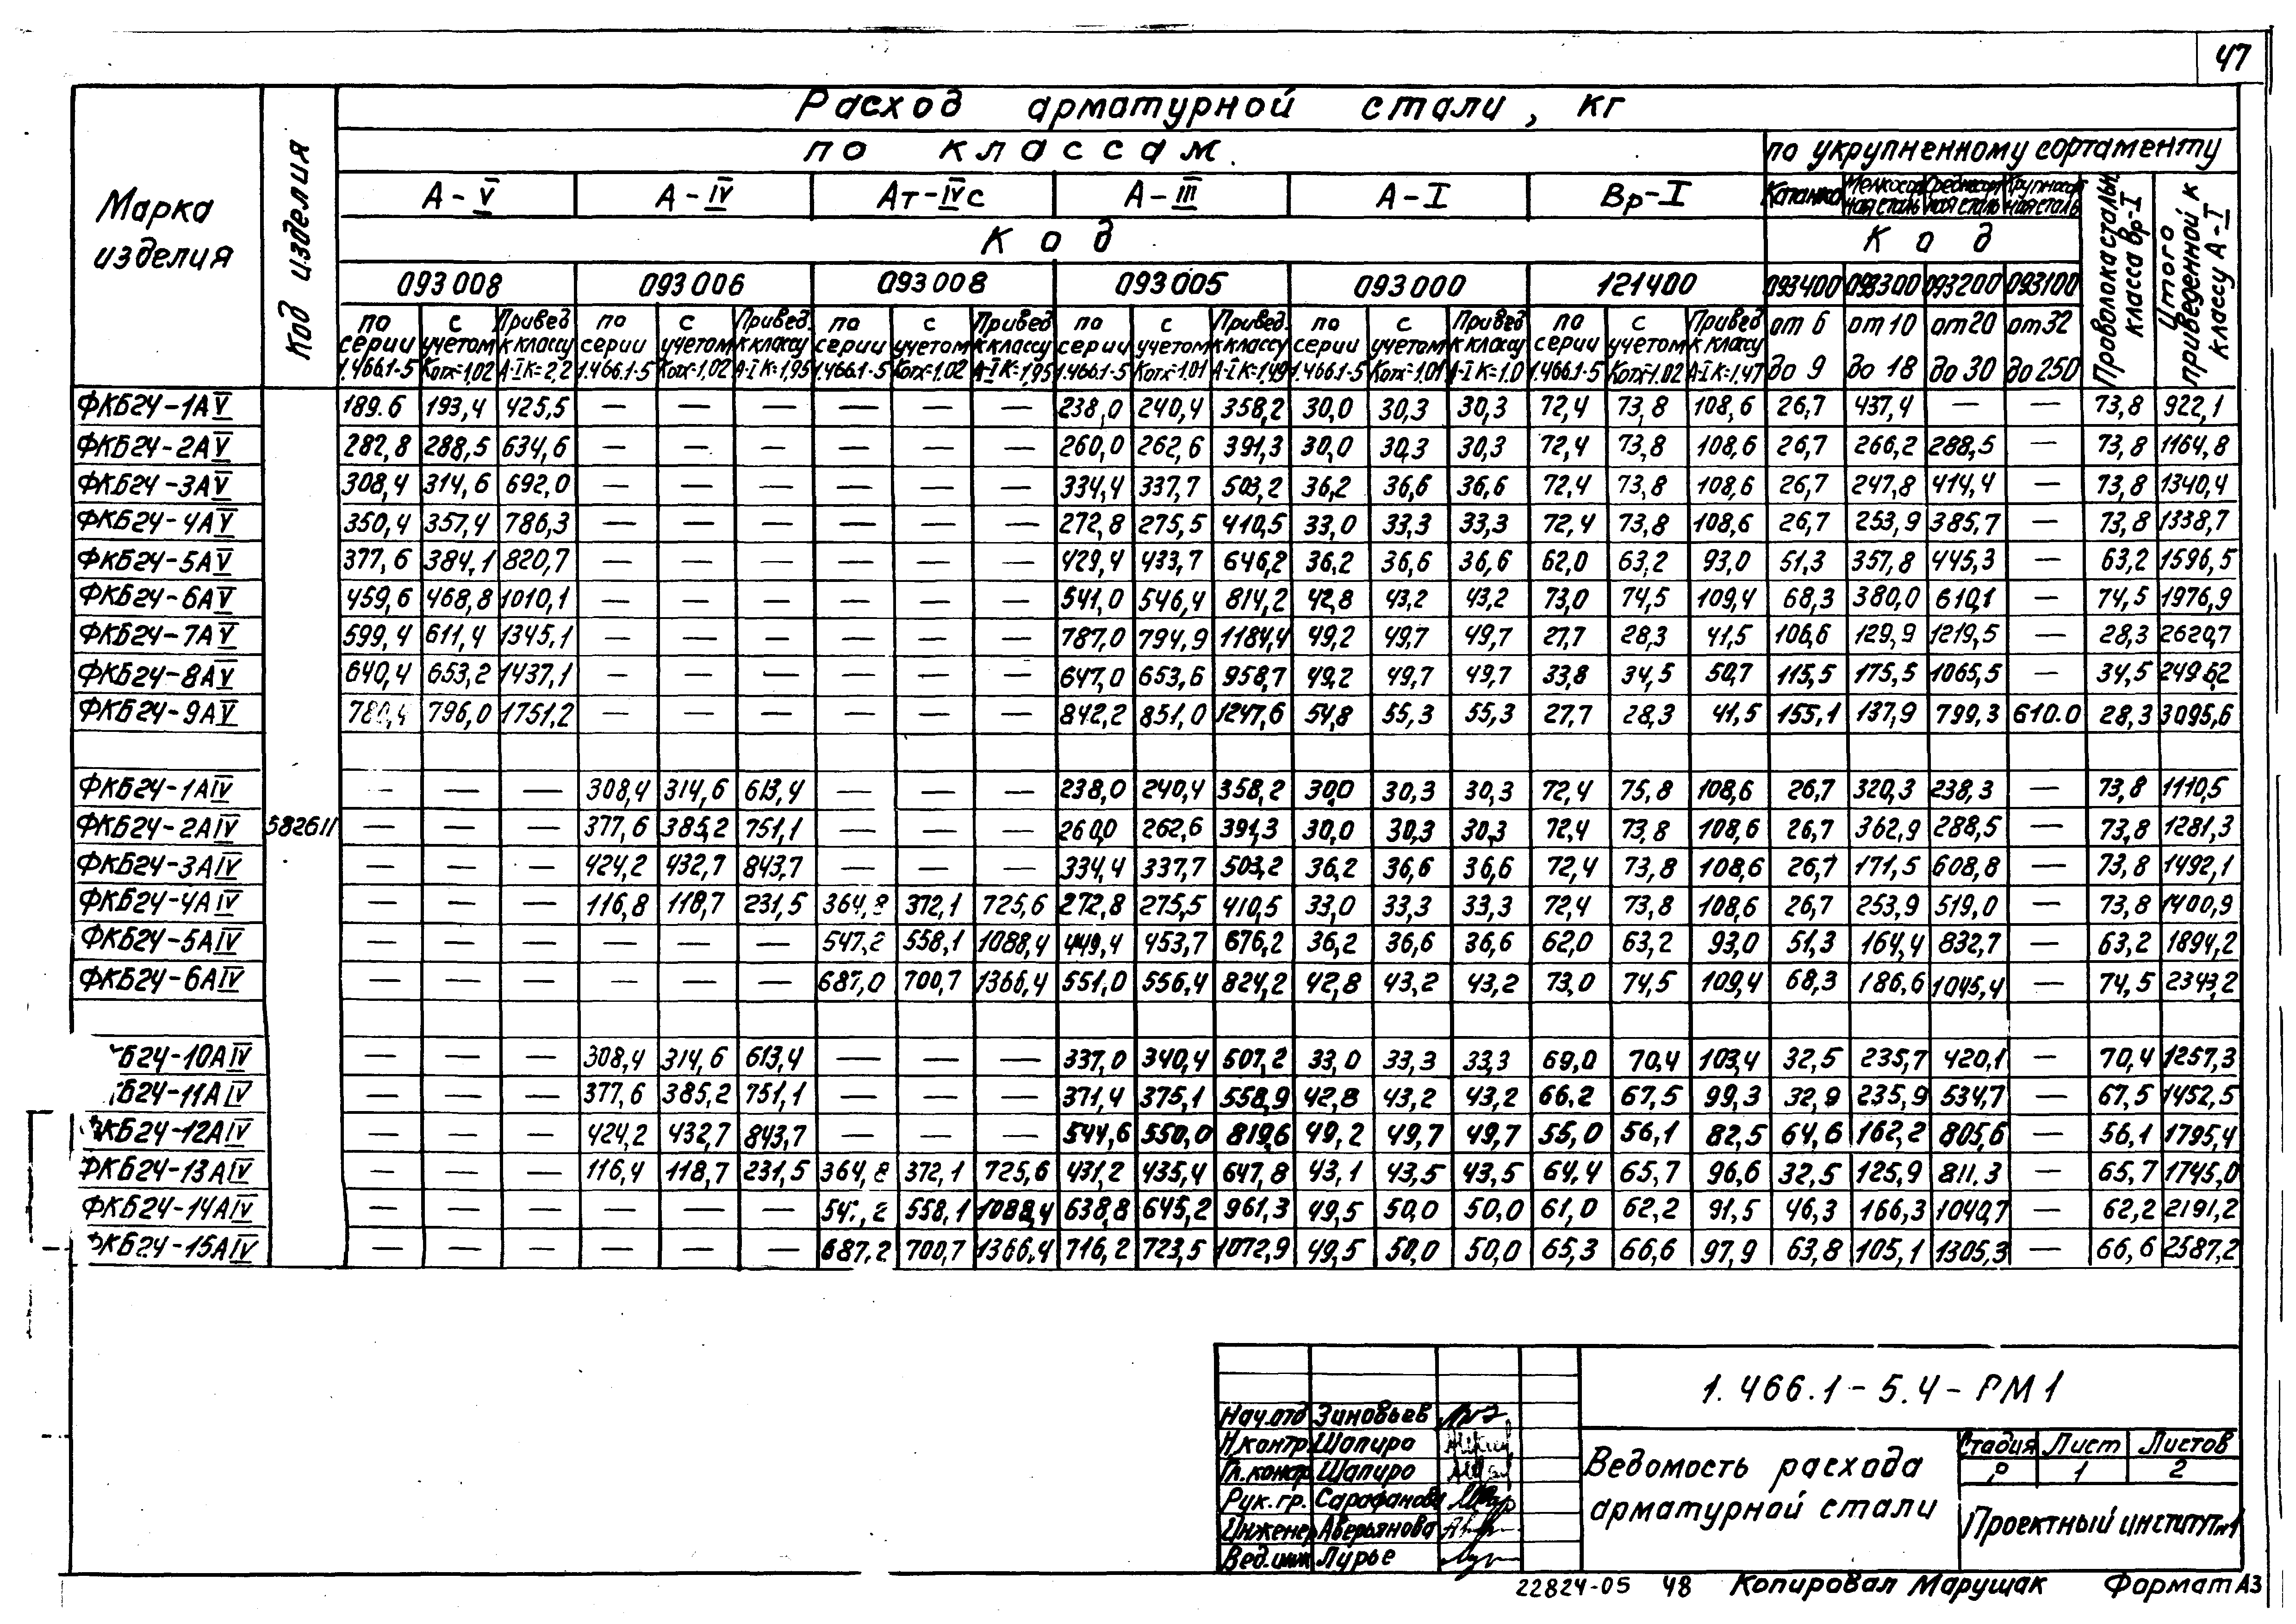 47
Расход арматурной стали, кг
по классам.
по укрупненному сортаменту
Марка изделия
Код изделия
А-V А-IV Ат-IVс А-III А-I Вр-I Катанка Мелкосортная сталь Среднесортная сталь Крупносортная сталь
Проволока стальн. класса Вр-I
Итого приведенной к классу А-I
Код Код
093008 093006 093008 093005 093000 121400 093400 093300 093200 093100
по серии 1.466.1-5 с учетом Котх=1,02 Привед к классу А-I К=2,2 по серии 1.466.1-5 с учетом Котх=1,02 Привед. к классу А-I К=1,95 по серии 1.466.1-5 с учетом Котх=1,02 Привед к классу А-I К=1,95 по серии 1.466.1-5 с учетом Котх=1,01 Привед. к классу А-I К=1,49 по серии 1.466.1-5 с учетом Котх=1,01 Привед к классу А-I К=1.0 по серии 1.466.1-5 с учетом Котх=1.02 Привед к классу А-I К=1,47 от 6 до 9 от 10 до 18 от 20 до 30 от 32 до 250
ФКБ24-1АV 189.6 193,4 425,5 — — — — — — 238,0 240,4 358,2 30,0 30,3 30,3 72,4 73,8 108,6 26,7 437,4 — — 73,8 922,1
ФКБ24-2АV 282,8 288,5 634,6 — — — — — — 260,0 262,6 391,3 30,0 30,3 30,3 72,4 73,8 108,6 26,7 266,2 288,5 — 73,8 1164,8
ФКБ24-3АV 308,4 314,6 692,0 — — — — — — 334,4 337,7 503,2 36,2 36,6 36,6 72,4 73,8 108,6 26,7 247,8 414,4 — 73,8 1340,4
ФКБ24-4АV 350,4 357,4 786,3 — — — — — — 272,8 275,5 410,5 33,0 33,3 33,3 72,4 73,8 108,6 26,7 253,9 385,7 — 73,8 1338,7
ФКБ24-5АV 377,6 384,1 820,7 — — — — — — 429,4 433,7 646,2 36,2 36,6 36,6 62,0 63,2 93,0 51,3 357,8 445,3 — 63,2 1596,5
ФКБ24-6АV 459,6 468,8 1010,1 — — — — — — 541,0 546,4 814,2 42,8 43,2 43,2 73,0 74,5 109,4 68,3 380,0 610,1 — 74,5 1976,9
ФКБ24-7АV 599,4 611,4 1345,1 — — — — — — 787,0 794,9 1184,4 49,2 49,7 49,7 27,7 28,3 41,5 106,6 129,9 1219,5 — 28,3 2620,7
ФКБ24-8АV 640,4 653,2 1437,1 — — — — — — 647,0 653,6 958,7 49,2 49,7 49,7 33,8 34,5 50,7 115,5 175,5 1065,5 — 34,5 2496,2
ФКБ24-9АV 780,4 796,0 1751,2 — — — — — — 842,2 851,0 1247,6 54,8 55,3 55,3 27,7 28,3 41,5 155,1 137,9 799,3 610.0 28,3 3095,6
ФКБ24-1АIV — — — 308,4 314,6 613,4 — — — 238,0 240,4 358,2 30,0 30,3 30,3 72,4 75,8 108,6 26,7 320,3 238,3 — 73,8 1110,5
ФКБ24-2АIV 582611 — — — 377,6 385,2 751,1 — — — 260,0 262,6 391,3 30,0 30,3 30,3 72,4 73,8 108,6 26,7 362,9 288,5 — 73,8 1281,3
ФКБ24-3АIV — — — 424,2 432,7 843,7 — — — 334,4 337,7 503,2 36,2 36,6 36,6 72,4 73,8 108,6 26,7 171,5 608,8 — 73,8 1492,1
ФКБ24-4АIV — — — 116,8 118,7 231,5 364,8 372,1 725,6 272,8 275,5 410,5 33,0 33,3 33,3 72,4 73,8 108,6 26,7 253,9 519,0 — 73,8 1400,9
ФКБ24-5АIV — — — — — — 547,2 558,1 1088,4 449,4 453,7 676,2 36,2 36,6 36,6 62,0 63,2 93,0 51,3 164,4 832,7 — 63,2 1894,2
ФКБ24-6АIV — — — — — — 687,0 700,7 1366,4 551,0 556,4 824,2 42,8 43,2 43,2 73,0 74,5 109,4 68,3 186,6 1045,4 — 74,5 2343,2
Б24-10АIV — — — 308,4 314,6 613,4 — — — 337,0 340,4 507,2 33,0 33,3 33,3 69,0 70,4 103,4 32,5 235,7 420,1 — 70,4 1257,3
Б24-11АIV — — — 377,6 385,2 751,1 — — — 371,4 375,1 558,9 42,8 43,2 43,2 66,2 67,5 99,3 32,9 235,9 534,7 — 67,5 1452,5
КБ24-12АIV — — — 424,2 432,7 843,7 — — — 544,6 550,0 819,6 49,2 49,7 49,7 55,0 56,1 82,5 64,6 162,2 805,6 — 56,1 1795,4
ФКБ24-13АIV — — — 116,4 118,7 231,5 364,8 372,1 725,6 431,2 435,4 647,8 43,1 43,5 43,5 64,4 65,7 96,6 32,5 125,9 811.3 — 65,7 1745,0
ФКБ24-14АIV — — — — — — 558,1 1088,4 638,8 645,2 961,3 49,5 50,0 50,0 61,0 62,2 91,5 46,3 166,3 1040,7 — 62,2 2191,2
ФКБ24-15АIV — — — — — — 687,2 700,7 1366,4 716,2 723,5 1072,9 49,5 50,0 50,0 65,3 66,6 97,9 63,8 105,1 1305,3 — 66,6 2587,2
1.466.1-5.4-РМ1
Нач.отд Зиновьев
Н.контр Шапиро
Гл.констр Шапиро
Рук.гр. Сарафанова
Инженер Аверьянова
Вед.инж Лурье
Ведомость расхода
арматурной стали
Стадия Лист Листов
Р 1 2
Проектный институт №1
22824-05 48 Копировал Марущак Формат А3